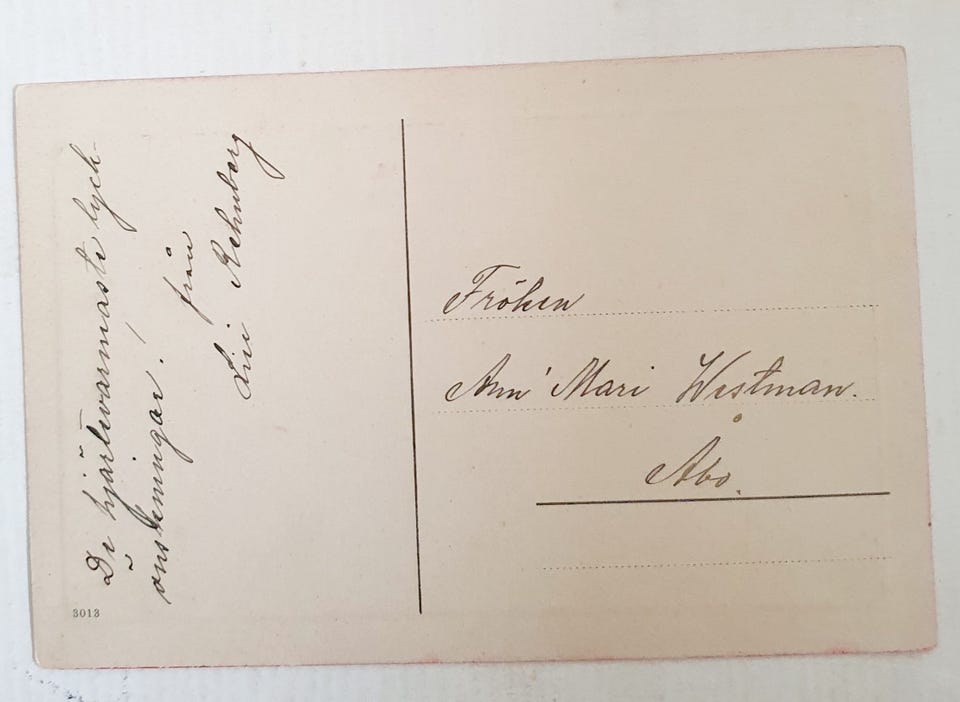 De hjärtevarmaste lyck-
önskningar!
från
Rehnberg
3013
Fröken
Ann' Mari Westman.
Åbo.